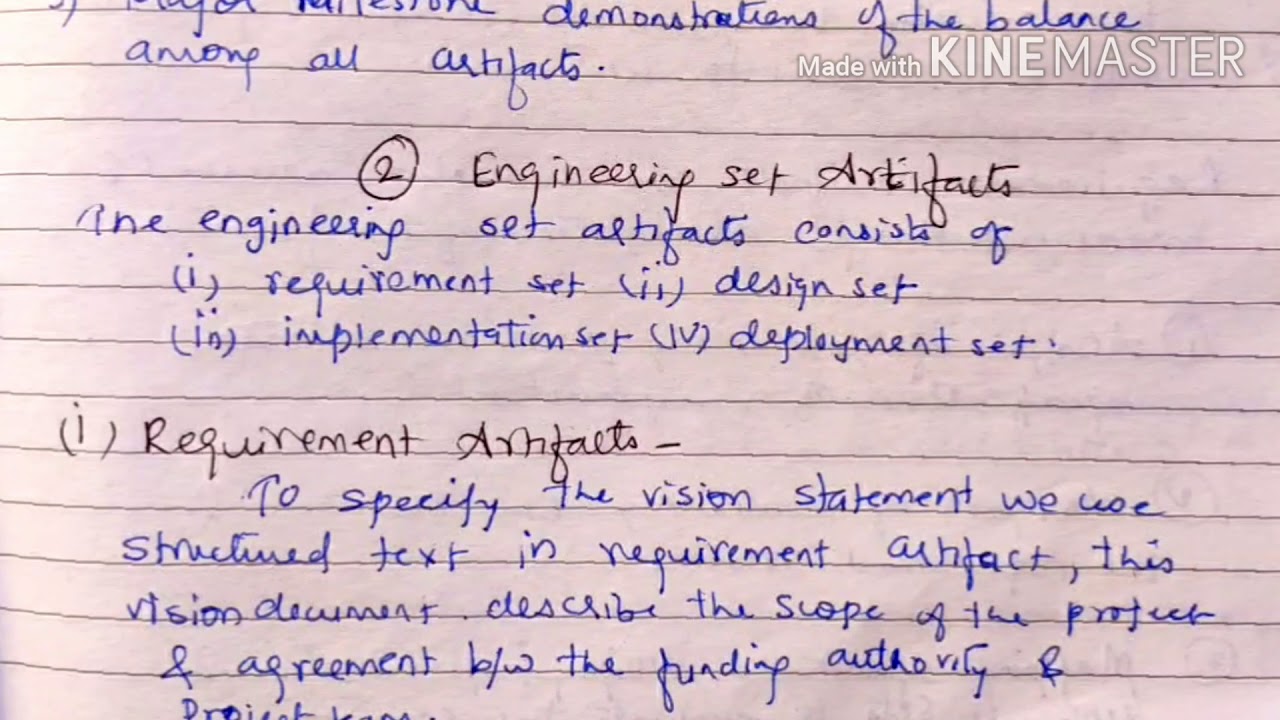 Major milestone demonstrations of the balance
among all artifacts.
Made with KINEMASTER
② Engineering set Artifacts
The engineering set artifacts consists of
(i) requirement set (ii) design set
(iii) implementation set (IV) deployment set.
(i) Requirement Artifacts -
To specify the vision statement we use
structured text in requirement artifact, this
vision document describe the scope of the project
& agreement b/w the funding authority &
Project team.